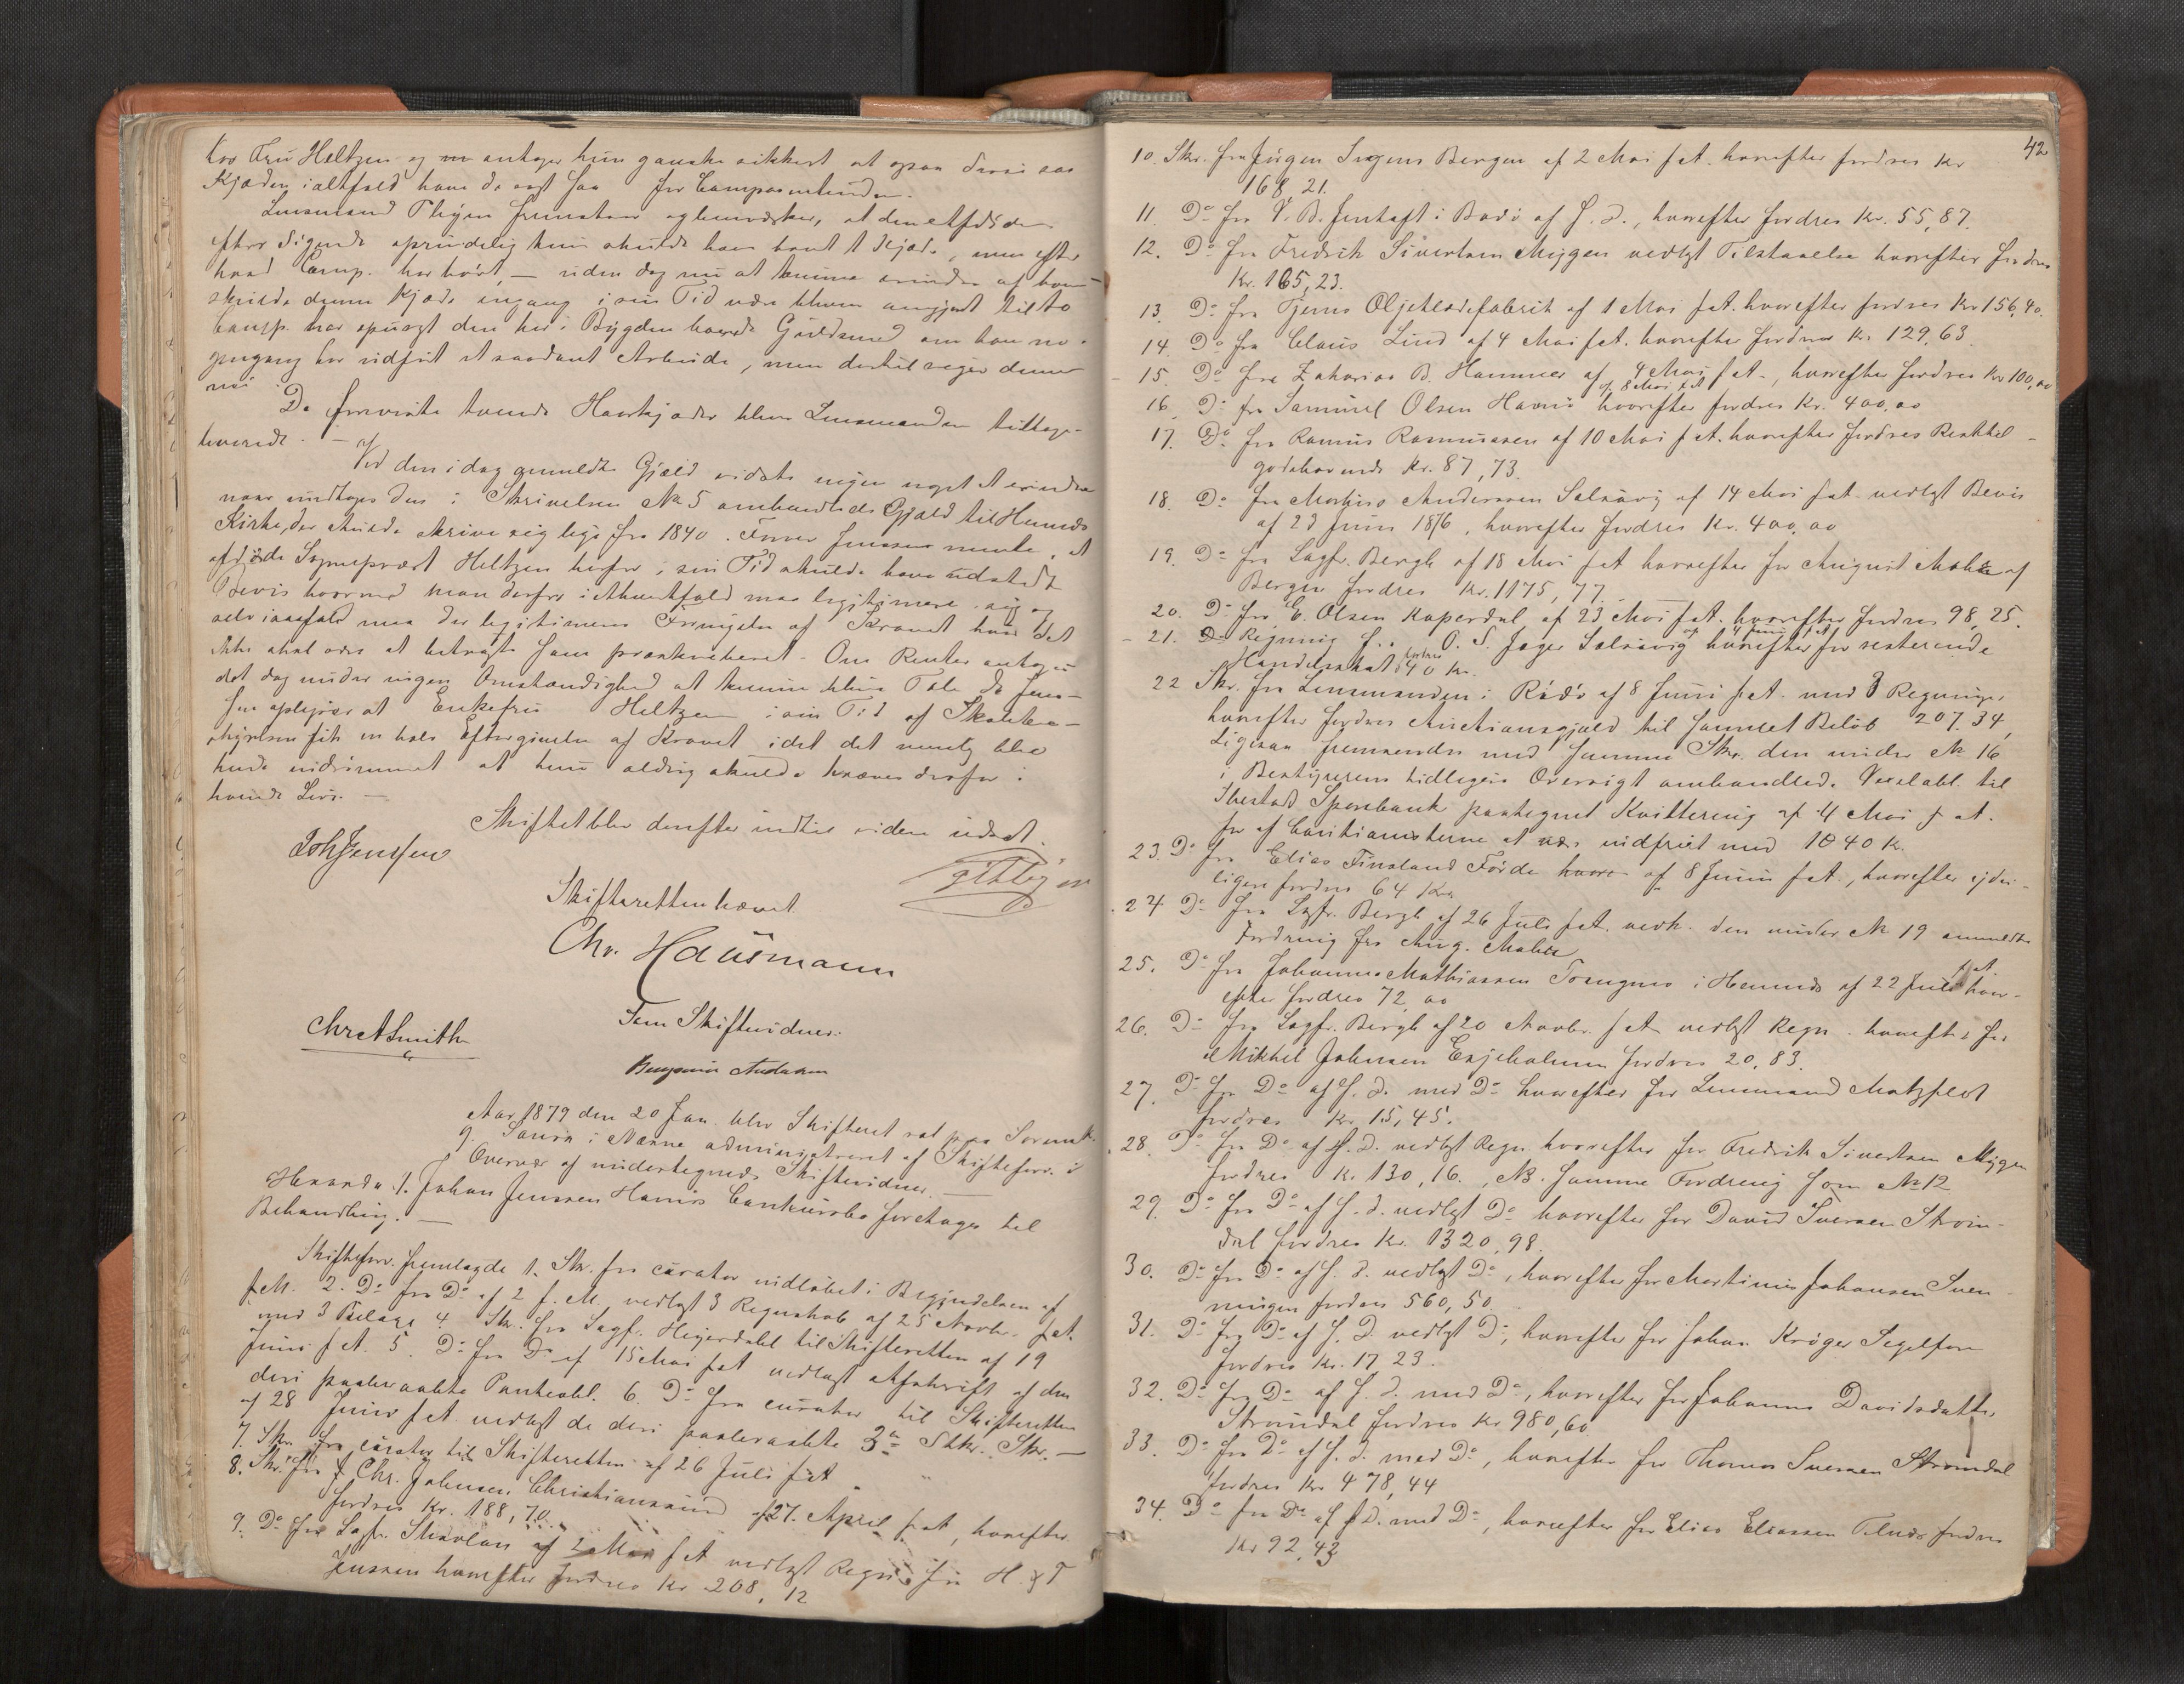 hos Fru Heltzen og antager hun ganske sikkert at ogsaa disse
Kjæder ialtfald have
Lensmand Fleÿm fremstaar og bemærker, at den
efter Sigende oprindelig kun skulde have havt 1 Kjæde, men efter
hvad Comp. har hørt, — uden dog nu at kunne erindre af hvem —
skulde denne Kjæde engang i sin Tid være bleven omgjort til to
Comp. har spurgt den her i Bÿgden boende Guldsmed om han no-
gengang har udført et saadant Arbeide, men dertil siger denne
nei.
De foreviste tvende Haarkjæder blev Lensmanden tilbage-
leverede. —
Ved den i dag anmeldte Gjæld vidste ingen noget at erindre
naar undtages den i Skrivelsen No 5 omhandlede Gjæld til Hemnæs
Kirke, der skulde skrive sig lige fra 1840. Forver Jenssen mente, at
afdøde Sognepræst Heltzen herfor i sin Tid skulde have udstedt
Bevis hvormed man derfor i Skurkfald maa legitimere sig og
selv isaafald maa der legitimeres Fornÿelse af Kravet hvis det
ikke skal være at betragte som præskriberet. Om Renter antages
det dog under ingen Omstændighed at kunne blive Tale da Jens-
sen oplÿser at Enkefru Heltzen i sin Tid af Skolebe-
stÿrelsen fik en hel Eftergivelse af Kravet idet det nemlig blev
hende indrømmet at hun aldrig skulde kræves derfor i
hendes Live. —
Skiftet blev derefter indtil videre udsat.
Joh Jenssen
Skifteretten hævet.
Chr. Hausmann
Chr A Smith
Som Skiftevidner:
Benjamin Andersen
Aar 1879 den 20 Jan. blev Skifteret sat paa Sorenskr.
g. Souvn i Næsne administreret af Skifteforv. i
Overvær af undertegnede Skiftevidner. —
Hvorda 1. Johan Jenssen Havnøs Concursbo foretages til
Behandling. —
Skifteforv. fremlagde 1. Skr. fra curator indløbet i Begyndelsen af
f. M. 2. Do fra Do af 2 f. M. vedlagt 3 Regnskab af 25 Novbr. f. A.
med 3 Bilage 4. Skr. fra Sagf. Hegerdahl til Skifteretten af 19
Juni f A. 5. Do fra Do af 15 Mai f A vedlagt Afskrift af den
deri paaberaabte Panteobl. 6. Do fra curator til Skifteretten
af 28 Juni f A. vedlagt de deri paaberaabte 3de Stkr. Skr. —
7. Skr. fra curator til Skifteretten af 26 Juli f A
8. Skr. fra J Chr. Johnsen Christianssund af 27. April f. A, hvorefter
fordres Kr. 188,70.
9. Do fra Sagfr. Skavlan af 2 Mai f A vedlagt Regn. fra H. & T
Jenssen hvorefter fordres Kr 208,12
42
10. Skr. fra Jürgen Bergen af 2 Mai f A. hvorefter fordres Kr
168,21.
11. Do fra V. B. Jentoft i Bodø af S. D., hvorefter fordres Kr. 55,87.
12. Do fra Fredrik Sivertsen Mÿgen vedlagt Tilstaaelse hvorefter fordres
Kr. 165,23.
13. Do fra Tjerns Oljeklædefabrik af 1 Mai f A. hvorefter fordres Kr 156,40.
14. Do fra Claus Lind af 4 Mai f A. hvorefter fordres Kr. 129,63.
15. Do fra Zakarias B. Hammer af 4 Mai f A., hvorefter fordres Kr 100,00
16. Do fra Samuel Olsen Havnø af 8 Mai f A hvorefter fordres Kr. 400,00
17. Do fra Rasmus Rasmussen af 10 Mai f A. hvorefter fordres Resttil-
godehavende Kr. 87,73.
18. Do fra Markus Anderssen Selsøvig af 14 Mai f A. vedlagt Bevis
af 23 Juni 1876, hvorefter fordres Kr. 400,00
19. Do fra Sagfr. Bergh af 18 Mai f A hvorefter for August Mohr af
Bergen fordres Kr. 1175,77.
20. Do fra E. Olsen Kaperdal af 23 Mai f A. hvorefter fordres 98,25.
21. Regning fra O. S. Jager Selsøvig af 4 Juni f A hvorefter for resterende
Handelsskat fordres 40 Kr.
22 Skr. fra Lensmanden i Rødø af 8 Juni f A. med 3 Regninger
hvorefter fordres Auctionsgjæld til samlet Beløb 207.34,
Ligesaa fremsendes med samme Skr. den under No 16
i Bestÿrerens tidligere Oversigt omhandlede Vexelobl. til
Ibestads Sparebank paategnet Kvittering af 4 Mai f A.
for af Cautionisterne at være indfriet med 1040 Kr.
23. Do fra Elias Finsland Førde af 8 Juni f A., hvorefter ÿder-
ligere fordres 64 Kr.
24 Do fra Sagfr. Bergh af 26 Juli f A. vedk. den under No 19 anmeldte
Fordring fra Aug. Mohr
25. Do fra Johannes Mathiassen Tvengnes i Hemnæs af 22 Juli f A. hvor-
efter fordres 72,00
26. Do fra Sagfr. Bergh af 20 Novbr. f A vedlagt Regn. hvorefter for
Mikkel Johnsen Esjeholmen fordres 20,83.
27. Do fra Do af S. D. med Do hvorefter for Lensmand Motzfelt
fordres Kr. 15,45.
28. Do fra Do af S. D. vedlagt Regn. hvorefter for Fredrik Sivertsen Mÿgen
fordres Kr. 130,16., NB. samme Fordring som No 12
29. Do fra Do af S. D. vedlagt Do hvorefter for David Iversen Strøm-
dal fordres Kr. 1320,98.
30. Do fra Do af S. D. vedlagt Do, hvorefter for Martinus Johansen Sven-
ningen fordres 560,50
31. Do fra Do af S. D. vedlagt Do, hvorefter for Johan Krøger Segelfore
fordres Kr. 17,23.
32. Do fra Do af S. D. med Do, hvorefter for Johanna Davidsdatter
Strømdal fordres Kr 980,60
33. Do fra Do af S. D. med Do, hvorefter for Thomas Iversen Strømdal
fordres Kr. 478,44
34. Do fra Do af S D. med Do, hvorefter for Elias Eliassen Tilnæs fordres
Kr 92,43